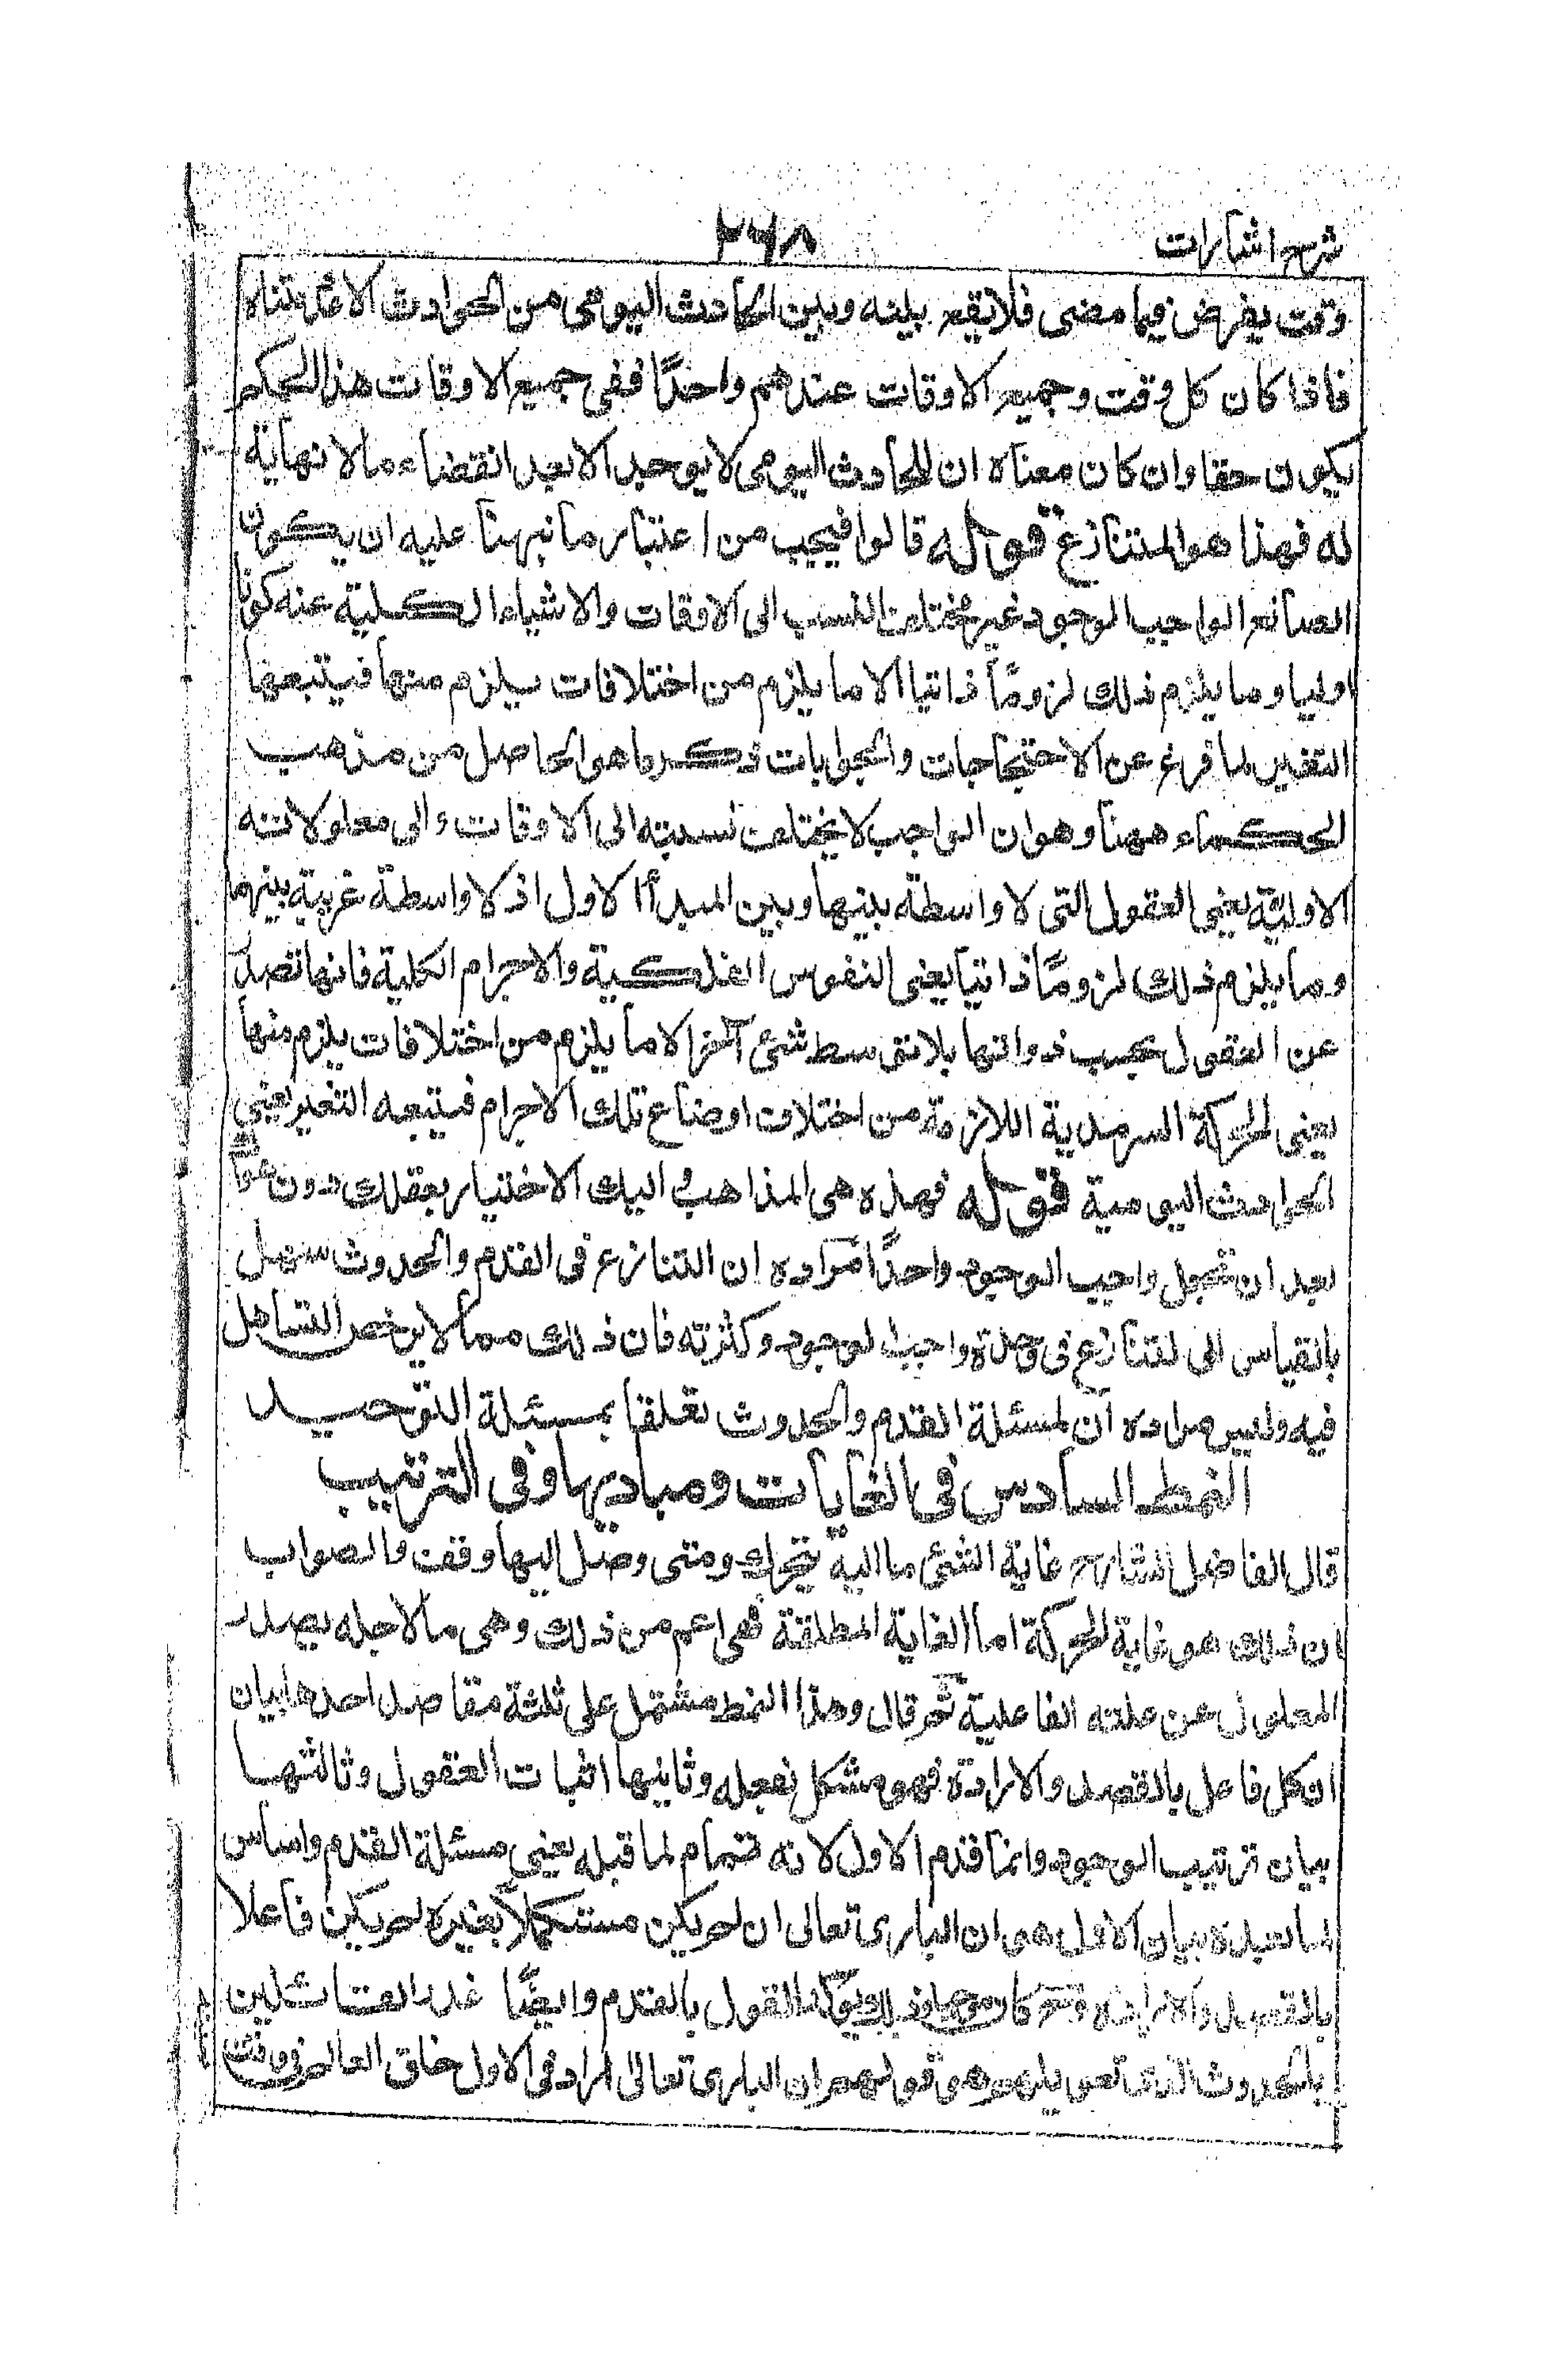 شرح اشارات
٢٦٨
وقت يفرض فيما مضى فلا يقع بينه وبين الحادث اليومى من الحوادث الا عدة متناه
فاذا كان كل وقت وجميع الاوقات عندهم واحدًا ففى جميع الاوقات هذا الحكم
يكون حقا وان كان معناه ان الحادث اليومى لا يوجد الا بعد انقضاء ما لا نهاية
له فهذا هو المتنازع قوله قالوا فيجب من اعتبار ما نبهنا عليه ان يكون
الصانع الواجب الوجود غير مختلف النسب الى الاوقات والاشياء الكلية عنه كونا
اوليا وما يلزم ذلك لزومًا ذاتيا الا ما يلزم من اختلافات يلزم منها فيتبعها
التغير لما فرغ عن الاحتجاجات والجوابات ذكر ما هو الحاصل من مذهب
الحكماء ههنا وهو ان الواجب لا يختلف نسبته الى الاوقات والى معلولاته
الاولية يعنى العقول التى لا واسطة بينها وبين المبدأ الاول اذ لا واسطة غريبة بينهما
وما يلزم ذلك لزومًا ذاتيا يعنى النفوس الفلكية والاجرام الكلية فانها تصدر
عن العقول بحسب ذواتها بلا توسط شئ آخر الا ما يلزم من اختلافات يلزم منها
يعنى الحركة السرمدية اللازمة من اختلاف اوضاع تلك الاجرام فيتبعه التغير يعنى
الحوادث اليومية قوله فهذه هى المذاهب واليك الاختيار بعقلك دون هواك
بعد ان تجعل واجب الوجود واحدًا مراده ان التنازع فى القدم والحدوث سهل
بالقياس الى التنازع فى وحدة واجب الوجود وكثرته فان ذلك مما لا يرخص التساهل
فيه وليس مراده ان لمسئلة القدم والحدوث تعلقا بمسئلة التوحيد
النمط السادس فى الغايات ومباديها وفى الترتيب
قال الفاضل الشارح غاية الشئ ما اليه يتحرك ومتى وصل اليها وقف والصواب
ان ذلك هو غاية الحركة اما الغاية المطلقة فهى اعم من ذلك وهى ما لاجله يصدر
المعلول عن علته الفاعلية ثم قال وهذا النمط مشتمل على ثلثة مقاصد احدها بيان
ان كل فاعل بالقصد والارادة فهو مشكل بفعله وثانيها اثبات العقول وثالثها
بيان ترتيب الوجود وانما قدم الاول لانه تمام لما قبله يعنى مسئلة القدم واساس
لما بعده بيان الاول هو ان البارى تعالى ان لم يكن مستكملًا بغيره لم يكن فاعلا
بالقصد والارادة كان موجبا وذلك يؤكد القول بالقدم وايضًا عذر القائلين
بالحدوث الذى تعويلهم هو قولهم ان البارى تعالى اراد فى الاول خلق العالم فى وقت